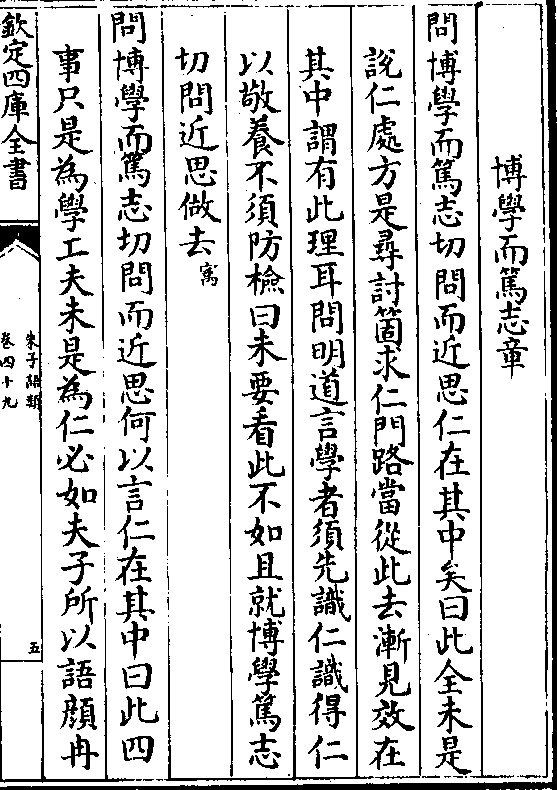 博學而篤志章
問博學而篤志切問而近思仁在其中矣曰此全未是
說仁處方是尋討箇求仁門路當從此去漸見效在
其中謂有此理耳問明道言學者須先識仁識得仁
以敬養不須防檢曰未要看此不如且就博學篤志
切問近思做去寓
問博學而篤志切問而近思何以言仁在其中曰此四
事只是為學工夫未是為仁必如夫子所以語顔冉
欽定四庫全書
朱子語類
卷四十九
五